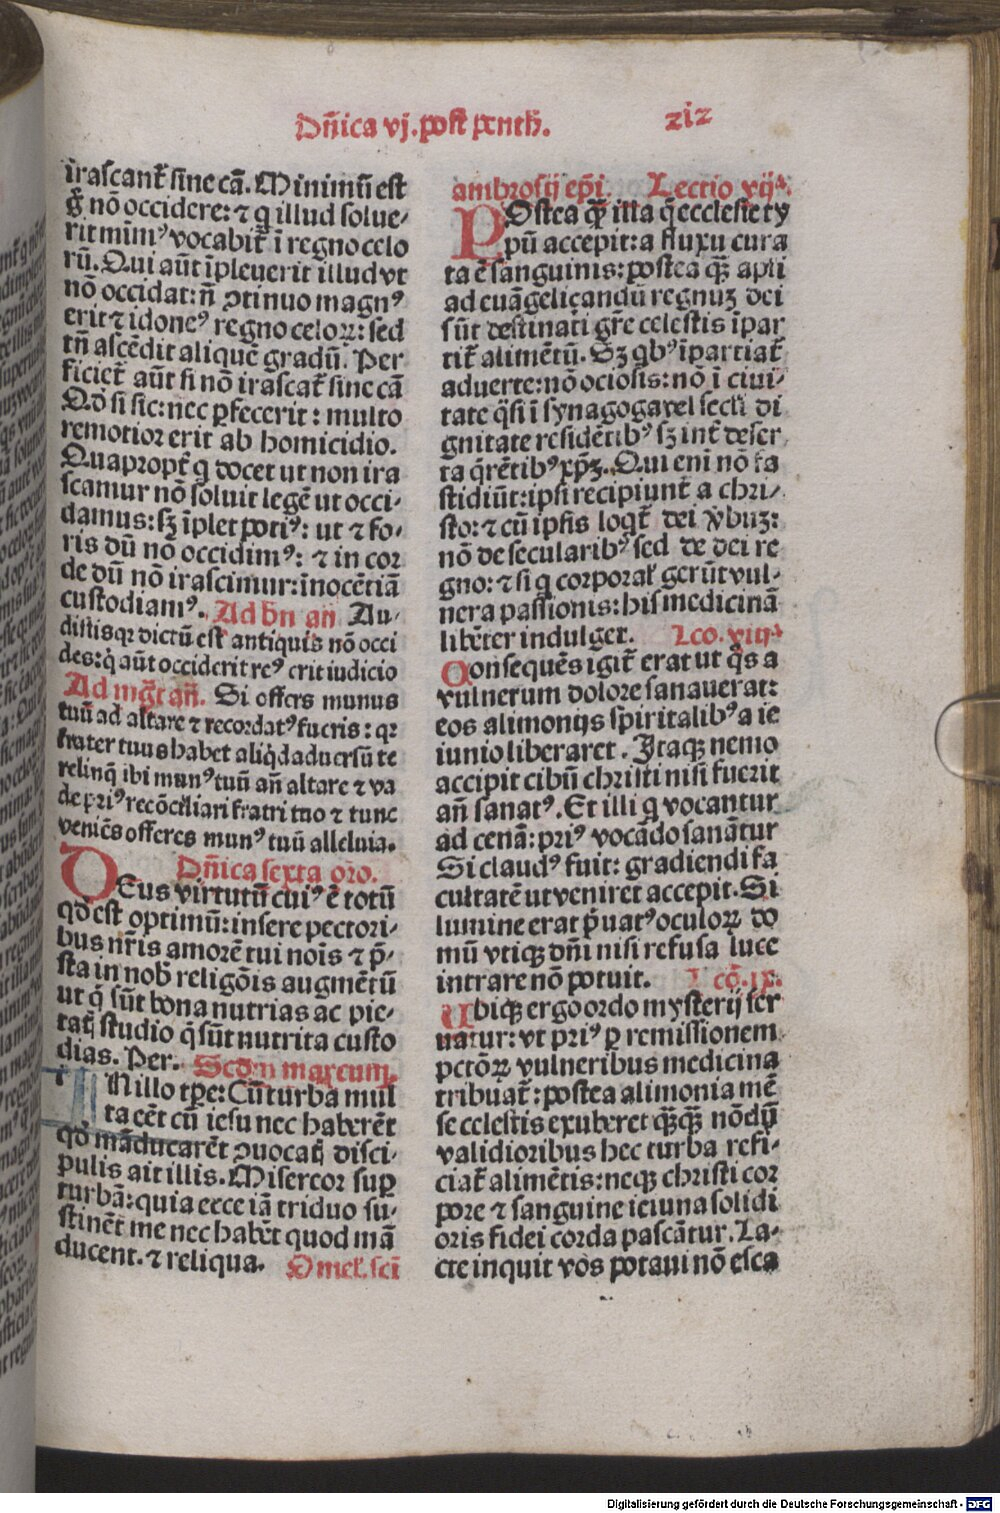 Dñica vj. post penth̄.
xix
irascant̄ sine cā. Minimū est
g̊ nō occidere: ⁊ q illud solue⸗
rit mīmꝰ vocabit̄ ī regno celo
rū. Qui aūt īpleuerit illud vt
nō occidat: ñ ꝯtinuo magnꝰ
erit ⁊ idoneꝰ regno celoꝝ: sed
tñ ascēdit aliquē gradū. Per
ficiet̄ aūt si nō irascat̄ sine cā
Qđ si sic: nec ꝑfecerit: multo
remotior erit ab homicidio.
Quapropt̄ q docet ut non ira
scamur nō soluit legē ut occi⸗
damus: sꝫ īplet potiꝰ: ut ⁊ fo⸗
ris dū nō occidimꝰ: ⁊ in cor
de dū nō irascimur: īnocētiā
custodiamꝰ. Ad bñ añ Au⸗
distisqꝛ dictū est antiquis nō occi
des: q̇ aūt occiderit reꝰ erit iudicio
Ad mḡt añ. Si offers munus
tuū ad altare ⁊ recordatꝰ fueris: qꝛ
frater tuus habet aliq̇d aduersū te
relinq̄ ibi munꝰ tuū añ altare ⁊ va
de priꝰ recōciliari fratri tuo ⁊ tunc
veniēs offeres munꝰ tuū alleluia.
Dñica sexta oro.
DEus virtutū cuiꝰ ē totū
qđ est optimū: insere pectori⸗
bus nr̄is amorē tui nois ⁊ p̄⸗
sta in nob̄ religōis augmētū
ut q̄ sūt bona nutrias ac pie⸗
tatꝭ studio q̄ sūt nutrita custo
dias. Per. Scđm marcum.
IN illo tpe: Cū turba mul
ta eēt cū iesu nec haberēt
qđ māducarēt ꝯuocatꝭ disci⸗
pulis ait illis. Misereor suꝑ
turbā: quia ecce iā triduo su⸗
stinēt me nec habēt quod mā
ducent. ⁊ reliqua. Omel. sci
ambrosij ep̄i. Lectio xijᵃ.
POstea qꝫ illa q̄ ecclesie ty
pū accepit: a fluxu cura
ta ē sanguinis: postea qꝫ apli
ad euāgelicandū regnuꝫ dei
sūt destinati gr̄e celestis īpar
tit̄ alimētū. Sꝫ qbꝰ īpartiat̄
aduerte: nō ociosis: nō ī ciui⸗
tate q̄si ī synagoga vel seclī di
gnitate residētibꝰ sꝫ int̄ deser
ta q̄rētibꝰ xp̄ꝫ. Qui enī nō fa
stidiūt: ipsi recipiunt̄ a chri⸗
sto: ⁊ cū ipsis loqt̄ dei v̄buꝫ:
nō de secularibꝰ sed de dei re
gno: ⁊ si q corporal̄ gerūt vul⸗
nera passionis: his medicinā
libēter indulget. Lco. xiijᵃ
Consequēs igit̄ erat ut q̄s a
vulnerum dolore sanauerat:
eos alimonijs spiritalibꝰ a ie
iunio liberaret. Itaqꝫ nemo
accipit cibū christi nisi fuerit
añ sanatꝰ. Et illi q vocantur
ad cenā: priꝰ vocādo sanātur
Si claudꝰ fuit: gradiendi fa
cultatē ut veniret accepit. Si
lumine erat p̄uatꝰ oculoꝝ do
mū vtiqꝫ dñi nisi refusa luce
intrare nō potuit. Lcō. ix.
Ubiqꝫ ergo ordo mysterij ser
uatur: vt priꝰ ꝑ remissionem
pctōꝝ vulneribus medicina
tribuat̄: postea alimonia mē
se celestis exuberet qꝫqꝫ nōdū
validioribus hec turba refi⸗
ciat̄ alimētis: neqꝫ christi cor
pore ⁊ sanguine ieiuna solidi
oris fidei corda pascātur. La⸗
cte inquit vos potaui nō esca
Digitalisierung gefördert durch die Deutsche Forschungsgemeinschaft - DFG